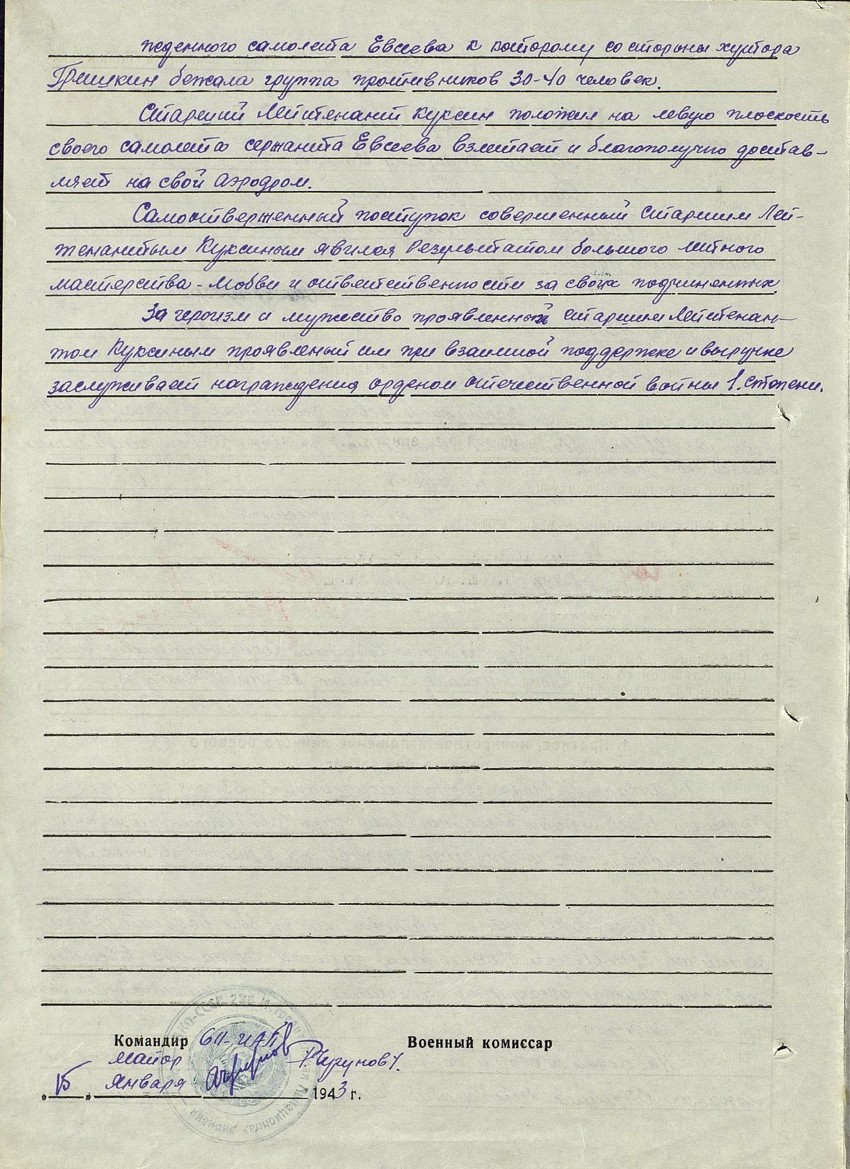 жденного самолета Евсеева к которому со стороны хутора
Гришкин бежала группа противников 30-40 человек.
Старший Лейтенант Куксин положил на левую плоскость
своего самолета сержанта Евсеева взлетает и благополучно достав-
ляет на свой аэродром.
Самоотверженный поступок совершенный Старшим Лей-
тенантом Куксиным явился результатом большого летного
мастерства - любви и ответственности за своих подчиненных
За героизм и мужество проявленный старшим Лейтенан-
том Куксиным проявленый им при взаимной поддержке и выручке
заслуживает награждения орденом отечественной войны 1. степени.
Командир 611-ИАП Военный комиссар
майор
„15" Января 1943 г.